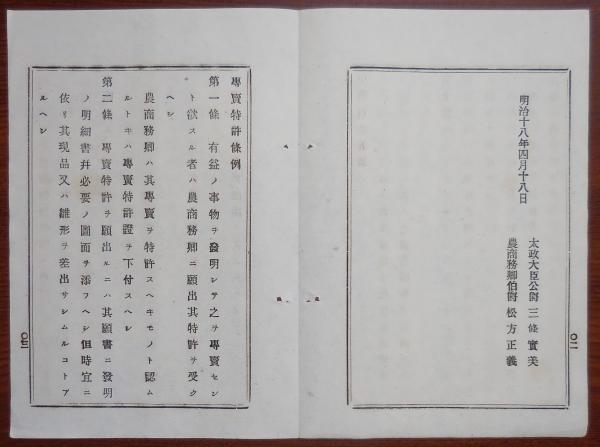 明治十八年四月十八日
太政大臣公爵三條實美
農商務卿伯爵松方正義
專賣特許條例
第一條　有益ノ事物ヲ發明シテ之ヲ專賣セン
ト欲スル者ハ農商務卿ニ願出其特許ヲ受ク
ヘシ
農商務卿ハ其專賣ヲ特許スヘキモノト認ム
ルトキハ專賣特許證ヲ下付スヘシ
第二條　專賣特許ヲ願出ルニハ其願書ニ發明
ノ明細書幷必要ノ圖面ヲ添フヘシ但時宜ニ
依リ其現品又ハ雛形ヲ差出サシムルコトア
ルヘシ